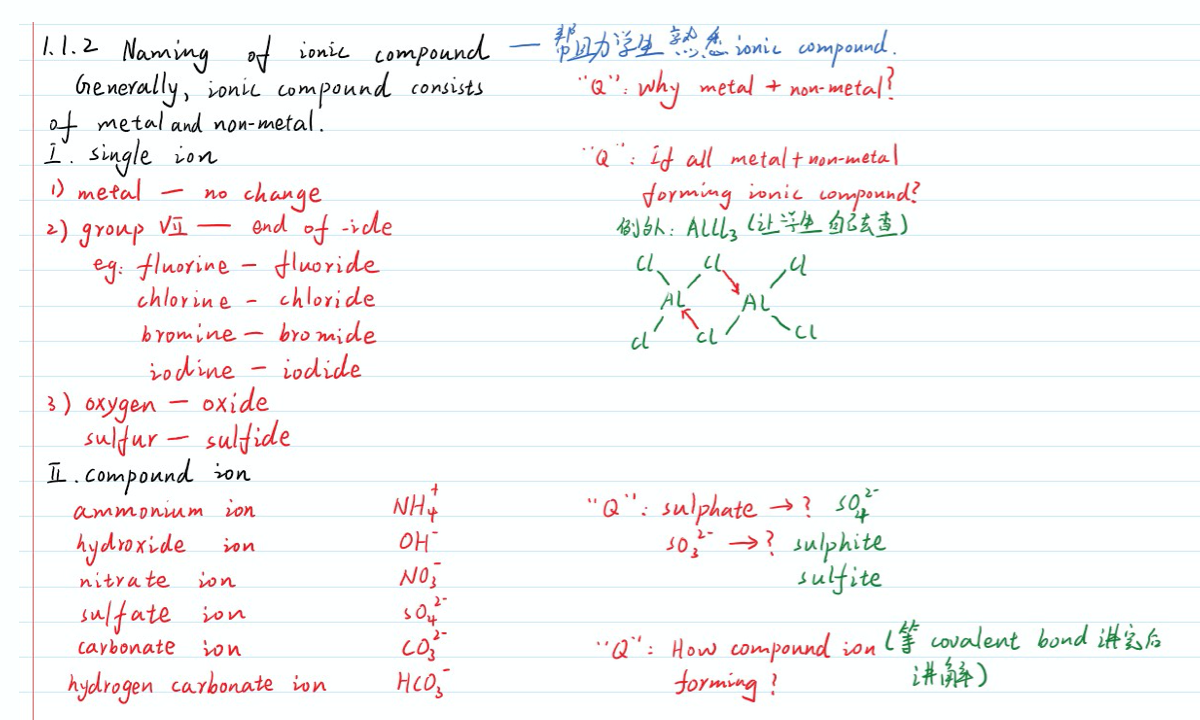 1.1.2 Naming of ionic compound — 帮助学生熟悉 ionic compound.
Generally, ionic compound consists
of metal and non-metal.
"Q": why metal + non-metal?
I. single ion
1) metal — no change
2) group VII — end of -ide
eg: fluorine — fluoride
chlorine - chloride
bromine — bromide
iodine — iodide
3) oxygen — oxide
sulfur — sulfide
"Q": if all metal + non-metal
forming ionic compound?
例外: AlCl₃ (让学生自己去查)
Cl Cl Cl
AL AL
Cl Cl Cl
II. compound ion
ammonium ion NH₄⁺
hydroxide ion OH⁻
nitrate ion NO₃⁻
sulfate ion SO₄²⁻
carbonate ion CO₃²⁻
hydrogen carbonate ion HCO₃⁻
"Q": sulphate → ? SO₄²⁻
SO₃²⁻ → ? sulphite
sulfite
"Q": How compound ion (等 covalent bond 讲完后
forming? 讲解)